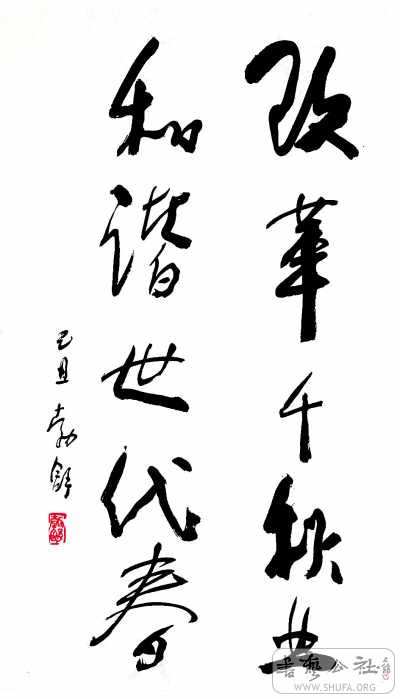 改革千秋业
和谐世代春
己丑 勃舒
書藝公社
WWW.SHUFA.ORG